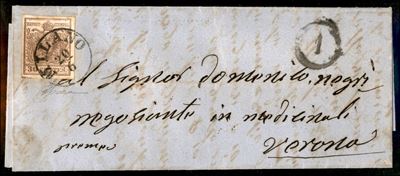 MILANO
20
6
1
al Signor domenico negri
negoziante in medicinali
Verona